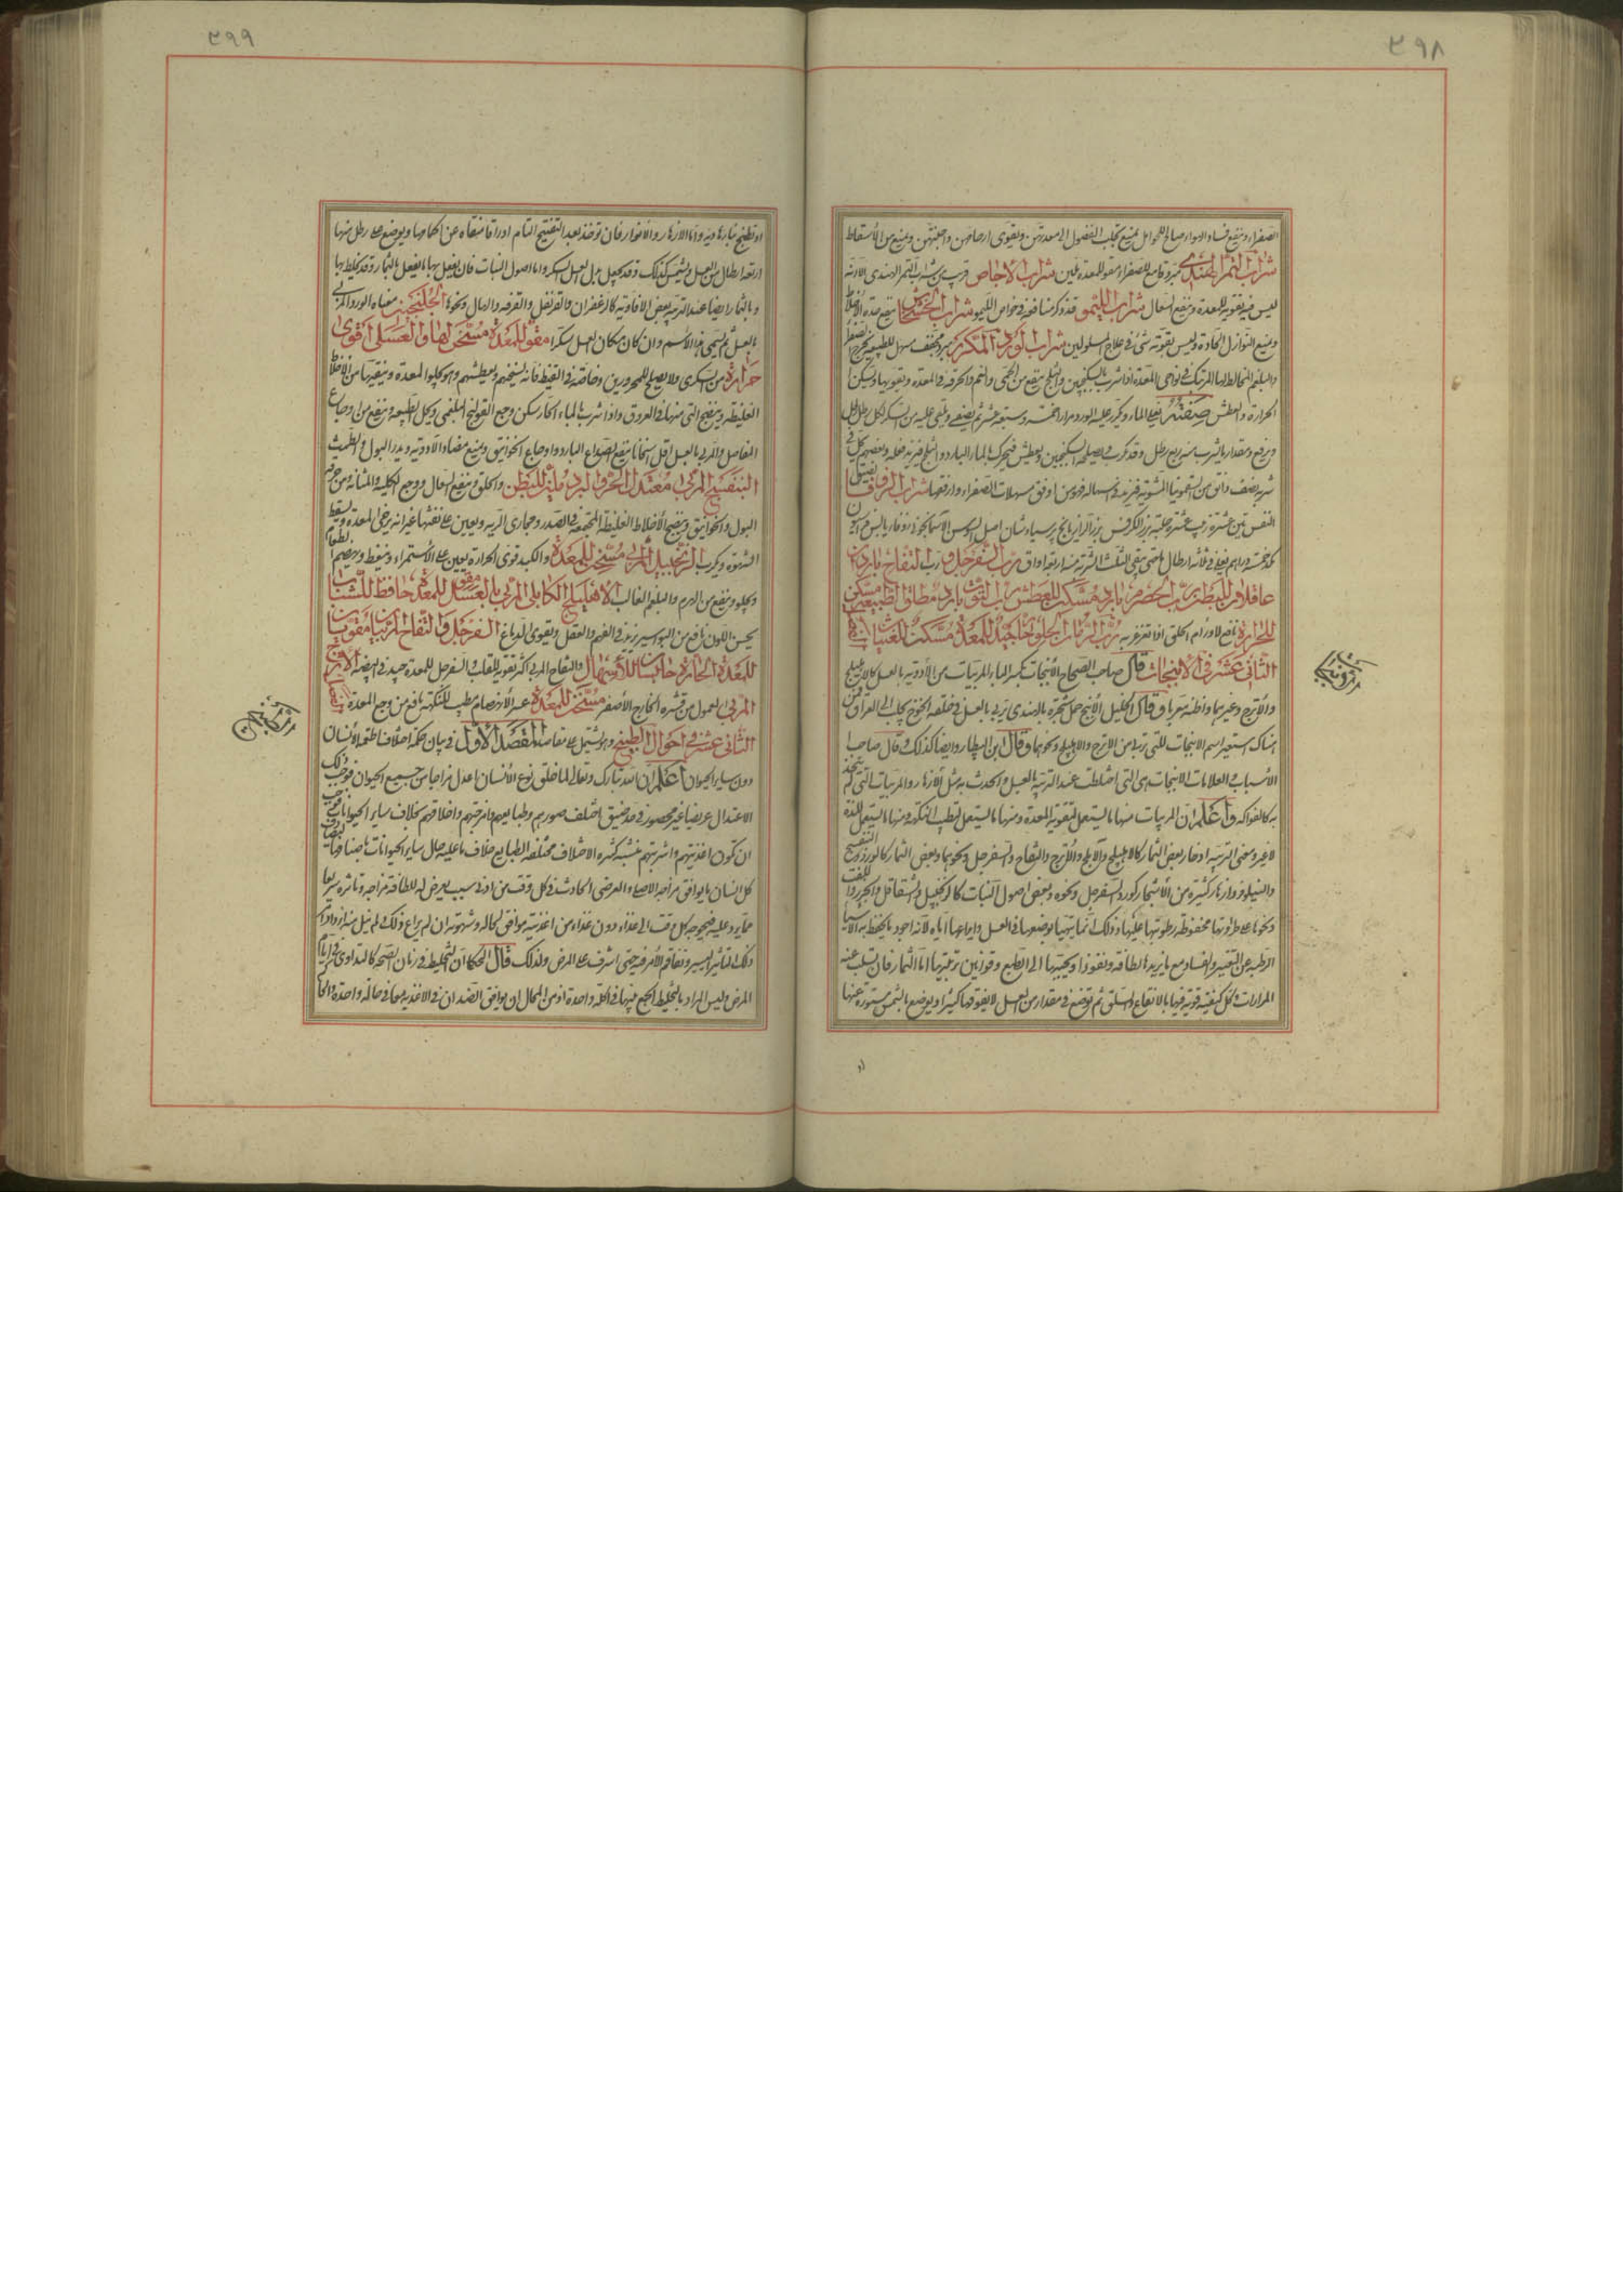 ٣٩٨
الصفراء وينفع فساد الهواء صالح للحوامل يمنع تجلب الفضول الى معدتهن ويقوى ارحامهن واجنتهن ويمنع من الأسقاط
شراب التمر الهندى مبرد قامع للصفراء مقو للمعدة ملين شراب الاجاص قريب من شراب التمر الهندى الا انه
ليس فيه تقوية للمعدة وينفع السعال شراب الليمو قد ذكر منافعه فى خواص الليمو شراب الخشخاش ينفع حدة الأخلاط
ويمنع النوازل الحادة وليس يفوته شئ فى علاج المسلولين شراب الورد المكرر مبرد مجفف مسهل للطبيعة يخرج الصفراء
والبلغم المخالط لها المرتبك فى نواحى المعدة اذا شرب بالسكنجبين والثلج ينفع من الحمى والغم والحرقة فى المعدة ويقويها ويسكن
الحرارة والعطش صنعته يغلى الماء ويكرر عليه الورد مرارا خمسة وسبعة عشر ثم يصفى ويلقى عليه من السكر لكل رطل رطل
ويرفع ومقدار ما يشرب منه ربع رطل وقد يكرب فيصلحه السكنجبين ويعطش فيحرك بالماء البارد والثلج فيزيد فعله وبعضهم
شربة نصف دانق من السقمونيا المشوية فيزيد فى اسهاله وهو من اوفق مسهلات الصفراء وانفعها شراب الزوفا
النفس تين عشرة زبيب عشرة حلبة بزر الكرفس بزر الرازيانج برسياوشان اصل السوس الاسمانجونى زوفا يابس
خمسة دراهم يغلى فى ثلاثة ارطال ماء حتى يبقى الثلث الشربة منه اربعة اواق رب السفرجل ورب التفاح باردان
عاقلان للبطن رب الحصرم بارد مسكن للعطش رب التوت بارد مطلق للطبيعة مسكن
للحرارة نافع لاورام الحلق اذا تغرغر به رب الرمان الحلو جيد للمعدة مسكن للغثيان
الثانى عشر فى الانبجات قال صاحب الصحاح الأنبجات بكسر الباء المربيات من الأدوية بالعسل كالاهليلج
والأترج وغيرهما واظنه معربا وقال الخليل الأنبج حمل شجرة بالهند يربى بالعسل فى خلقة الخوخ يجلب الى العراق
هناك استعير اسم الانبجات للتى تربى من الاترج والاهليلج ونحوهما وقال ابن البيطار وايضا كذلك وقال صاحب
الأسباب والعلامات الانبجات هى التى اختلطت عند التربية بالعسل واتحدت به مثل الأزهار والمربيات التى لم
به كالفواكه واعلم ان المربيات منها ما يستعمل لتقوية المعدة ومنها ما يستعمل لتطييب النكهة ومنها ما يستعمل للذة
لاغير ومعنى التربية ادخار بعض الثمار كالاهليلج والآملج والأترج والتفاح والسفرجل ونحوها وبعض الثمار كالورد
والنيلوفر وازهار كثيرة من الأشجار كورد السفرجل ونحوه وبعض اصول النبات كالزنجبيل والشقاقل والجزر
ونحوها على طراوتها محفوظة رطوبتها عليها وذلك انما يتهيأ بوضعها فى العسل وايداعها اياه لأنه اجود ما يحفظ به الاشياء
الرطبة عن التغيير والفساد مع ما يزيدها لطافة ونفوذا ويحببها الى الطبع وقوانين تربيتها اما الثمار فان يسلب عنه
المرارات وكل كيفية قوية فيها بالانقاع والسلق ثم توضع فى مقدار من العسل لا يفوقها كثيرا ويوضع بالشمس مستورة عنها
او
٣٩٩
او تطبخ بنار هادئة واما الازهار والانوار فان توخذ بعد التفتيح التام اوراقا منقاة عن اقماعها ويوضع على رطل منها
اربعة ارطال من العسل ويشمس كذلك وقد يجعل بدل العسل السكر واما اصول النبات فان يفعل بها ما يفعل بالثمار وقد يخلط بها
وبالثمار ايضا عند التربية بعض الافاوية كالزعفران والقرنفل والقرفة والهال ونحوها الجلنجبين معناه الورد المربى
بالعسل ثم سمى هذا الاسم وان كان مكان العسل سكرا مقو للمعدة مسخن لها والعسلى اقوى
حرارة من السكرى ولا يصلح للمحرورين وخاصة فى القيظ فانه يسخنهم ويعطشهم وهو يجلو المعدة وينقيها من الأخلاط
الغليظة وينضج التى منها فى العروق واذا شرب بالماء الحار سكن وجع القولنج البلغمى وحل الطبيعة وينفع من اوجاع
المفاصل والمربى بالعسل اقل اسخانا ينفع لصداع البارد واوجاع الخوانيق ويمنع مضار الادوية ويدر البول والطمث
البنفسج المربى معتدل الحر والبرد ملين للبطن والحلق وينفع السعال ووجع الكلية والمثانة من حرقة
البول والخوانيق وينضج الأخلاط الغليظة المجتمعة فى الصدر ومجارى الرية ويعين على نفثها غير انه يرخى المعدة ويسقط
الشهوة ويكرب الزنجبيل المربى مسخن للمعدة والكبد قوى الحرارة يعين على الأستمراء وينعظ ويهضم الطعام
ويجلو وينفع من الهرم والبلغم الغالب الاهليلج الكابلى المربى بالعسل مقو للمعدة حافظ للشباب
يحسن اللون نافع من البواسير يزيد فى الفهم والعقل ويقوى الدماغ السفرجل والتفاح المربيان مقويان
للمعدة الحارة حابسان للأسهال والتفاح المربى اكثر تقوية للقلب والسفرجل للمعدة جيد فى الهيضة الاترج
المربى المعمول من قشره الخارج الأصفر مسخن للمعدة عسر الأنهضام مطيب للنكهة نافع من وجع المعدة
الثانى عشر فى احوال الطبيخ وهو يشتمل على مقاصد المقصد الاول فى بيان حكمة اختلاف اطعمة الأنسان
دون ساير الحيوان اعلم ان الله تبارك وتعالى لما خلق نوع الأنسان اعدل مزاجا من جميع الحيوان
الاعتدال عريضا غير محصور فى حد ضيق اختلف صورهم وطبايعهم وامزجتهم واخلاقهم بخلاف ساير الحيوانات
ان تكون اغذيتهم واشربتهم كثيرة الاختلاف مختلفة الطبايع خلاف ما عليه حال ساير الحيوانات باصنافها
كل انسان ما يوافق مزاجه الاصلى والعرضى الحادث فى كل وقت من ادنى سبب يعرض له للطافة مزاجه وتاثره سريعا
مما يرد عليه فيحوجه كل وقت الى غذاء دون غذاء من اغذية موافق لحاله وشهوته
ذلك التأثير اليسير وتفاقم الأمر فيه حتى اشرف على المرض ولذلك قال الحكما ان التخليط فى زمان الصحة كالتداوى فى ايام
المرض وليس المراد بالتخليط الجمع بينها فى اكلة واحدة اذ من المحال ان يوافق الضدان فى الاغذية معا فى حالة واحدة